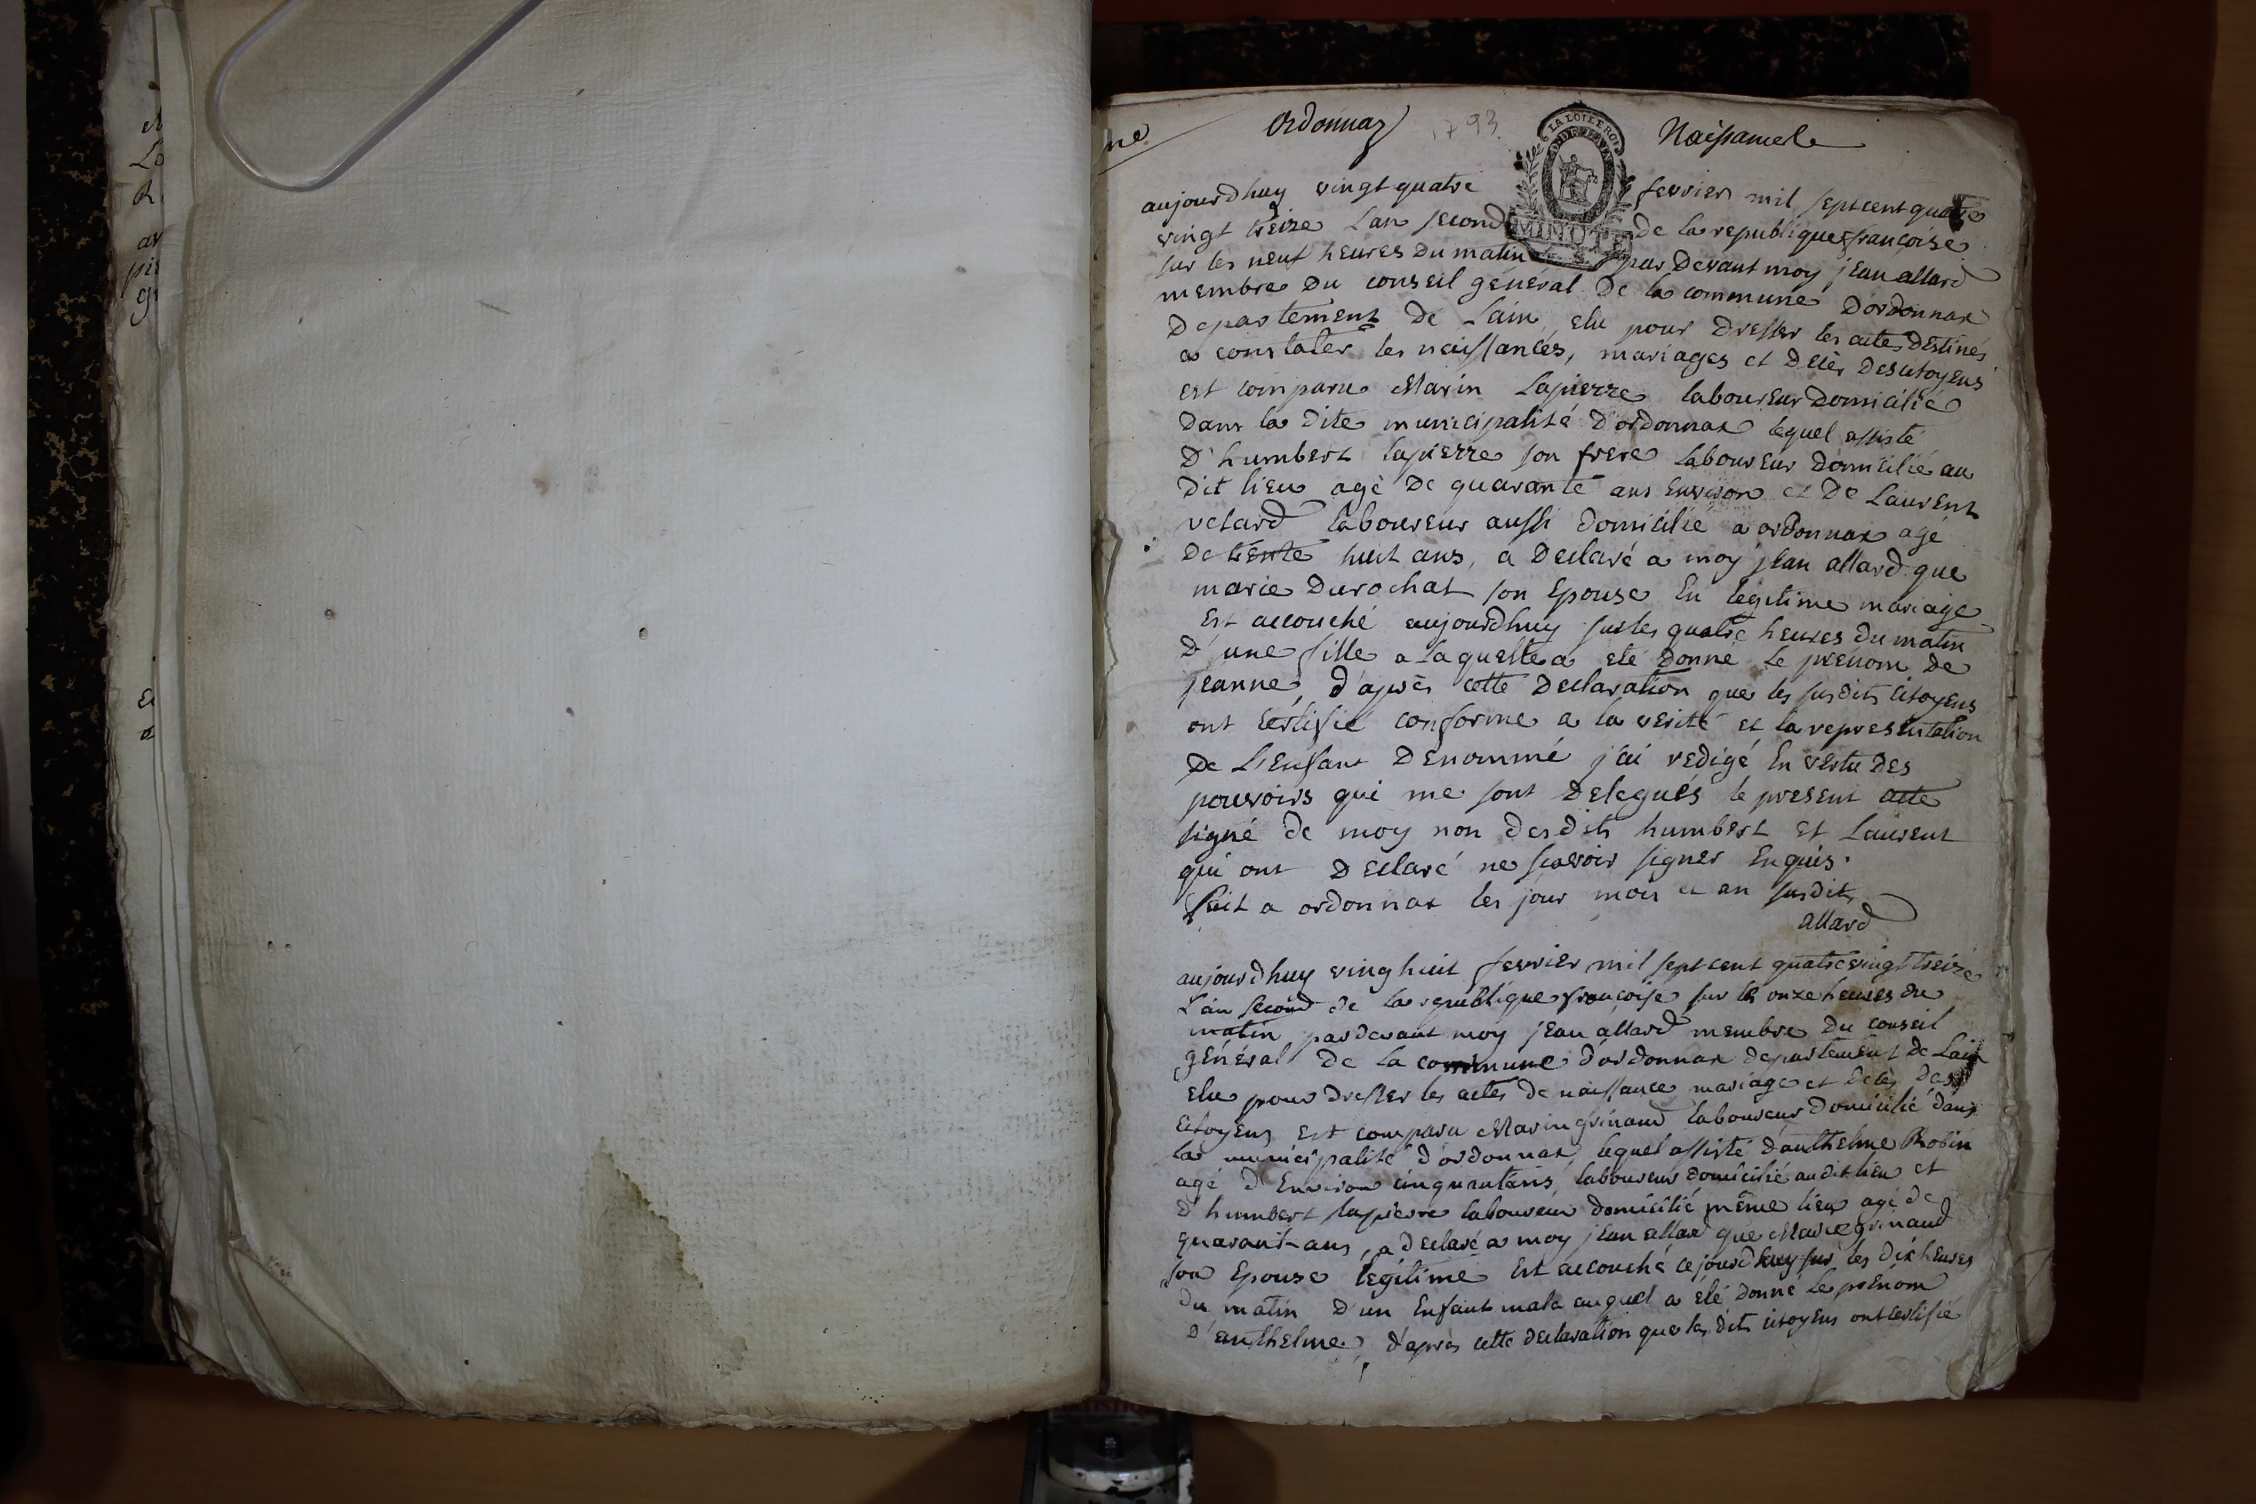 Ordonnaz 1793 Naissances
LA LOI ET LE ROI
MINUTE
aujourdhuy vingt quatre fevrier mil sept cent quatre
vingt treize L'an second de la republique françoise
sur les neuf heures du matin par devant moy jean allard
membre du conseil général de la commune d'ordonnax
departement de L'ain, elu pour dresser les actes destinés
a constater les naissances, mariages et décès des citoyens
est comparu Marin Lapierre laboureur domicilié
dans la dite municipalité d'ordonnax lequel assisté
d'humbert lapierre son frere laboureur domicilié au
dit lieu agé de quarante ans environ et de Laurent
velard laboureur aussi domicilié a ordonnax agé
de trente huit ans, a declaré a moy jean allard que
marie durochat son Epouse En legitime mariage
Est accouché aujourdhuy sur les quatre heures du matin
d'une fille a laquelle a eté donné le prénom de
jeanne, d'après cette declaration que les susdits citoyens
ont certifié conforme a la verité et la representation
de L'enfant denommé j'ai redigé En vertu des
pouvoirs qui me sont delegués le present acte
signé de moy non desdits humbert et Laurent
qui ont declaré ne scavoir signer Enquis.
fait a ordonnax les jour mois et an susdits
allard
aujourdhuy vingt huit fevrier mil sept cent quatre vingt treize
L'an second de la republique françoise sur les onze heures du
matin pardevant moy jean allard membre du conseil
général de la commune d'ordonnax departement de L'ain
elu pour dresser les actes de naissance mariage et décès des
citoyens est comparu Marin grinand laboureur domicilié dans
la municipalité d'ordonnax, lequel assisté d'anthelme Robin
agé d'Environ cinquantans, laboureur domicilié audit lieu et
d'humbert lapierre laboureur domicilié même lieu agé de
quarant ans, a declaré a moy jean allard que Marie grinand
son Epouse legitime est accouché cejourdhuy sur les dix heures
du matin d'un Enfant male auquel a eté donné le prénom
d'anthelme, d'après cette declaration que les dits citoyens ont certifié